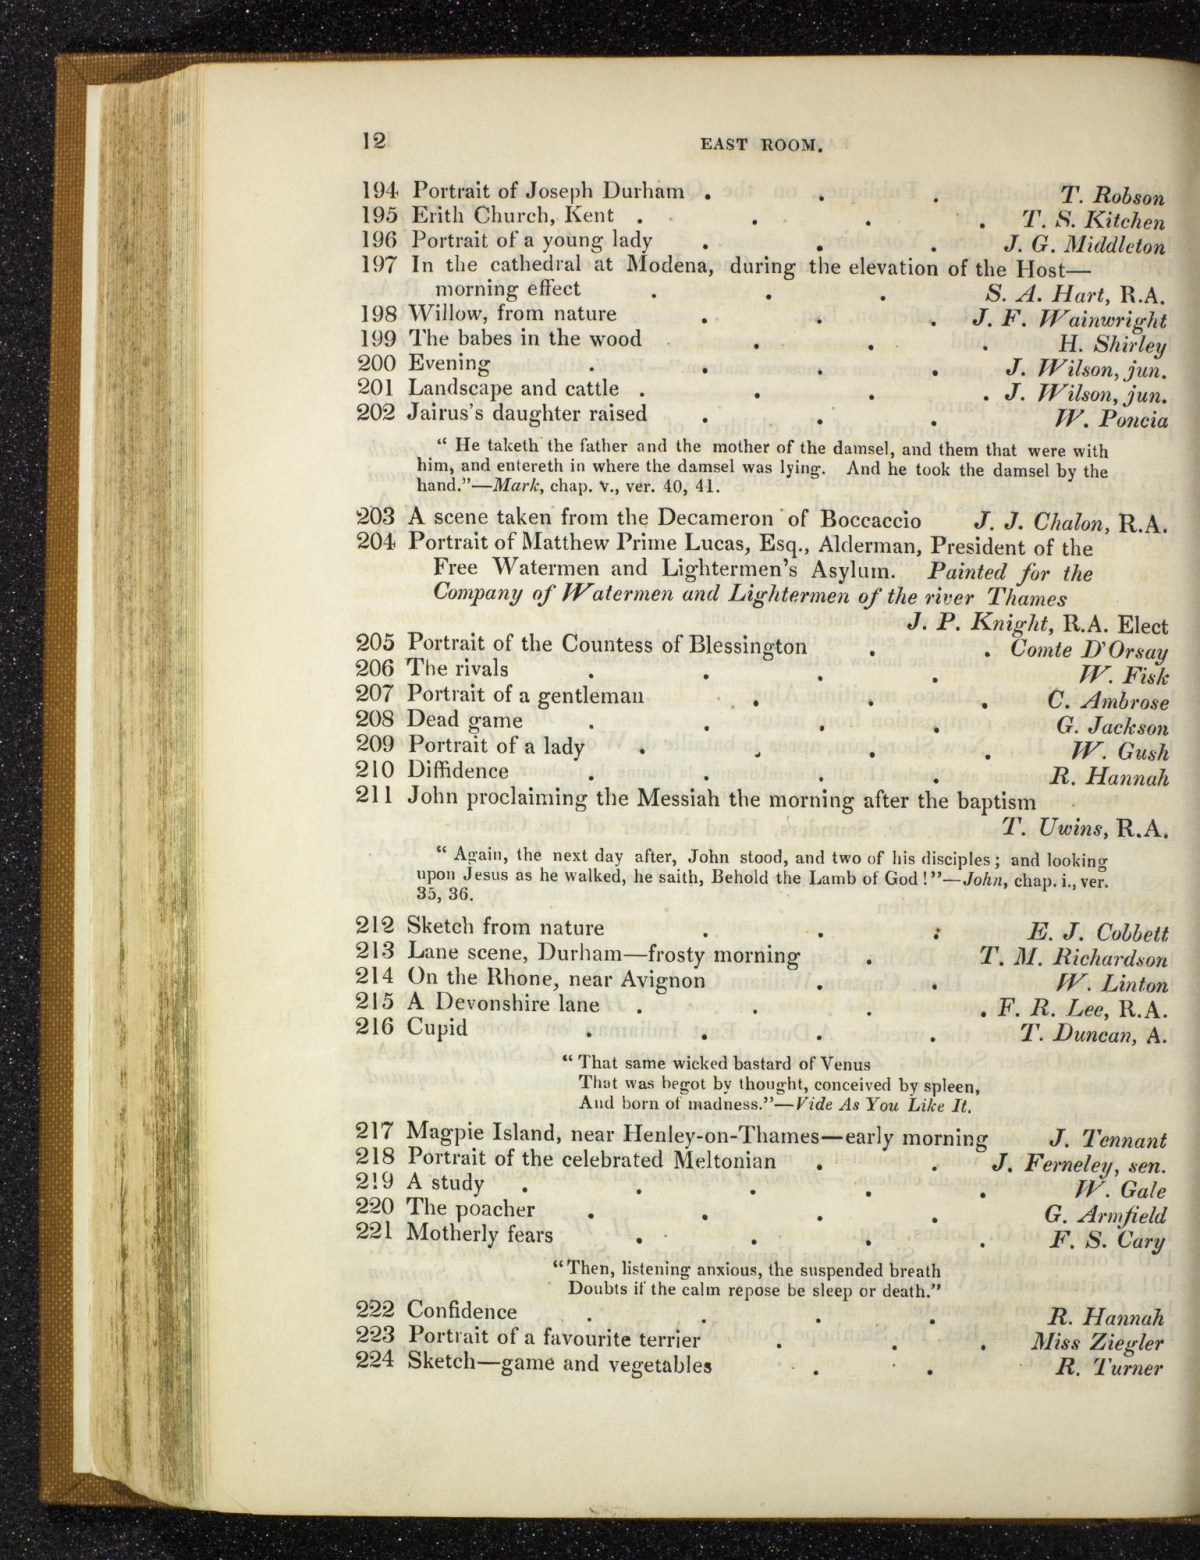 12 EAST ROOM.
194 Portrait of Joseph Durham . . . T. Robson
195 Erith Church, Kent . . . . T. S. Kitchen
196 Portrait of a young lady . . . J. G. Middleton
197 In the cathedral at Modena, during the elevation of the Host—
morning effect . . . S. A. Hart, R.A.
198 Willow, from nature . . . J. F. Wainwright
199 The babes in the wood . . . H. Shirley
200 Evening . . . . J. Wilson, jun.
201 Landscape and cattle . . . . J. Wilson, jun.
202 Jairus's daughter raised . . . W. Poncia
“ He taketh the father and the mother of the damsel, and them that were with
him, and entereth in where the damsel was lying. And he took the damsel by the
hand.”—Mark, chap. v., ver. 40, 41.
203 A scene taken from the Decameron of Boccaccio J. J. Chalon, R.A.
204 Portrait of Matthew Prime Lucas, Esq., Alderman, President of the
Free Watermen and Lightermen's Asylum. Painted for the
Company of Watermen and Lightermen of the river Thames
J. P. Knight, R.A. Elect
205 Portrait of the Countess of Blessington . . Comte D'Orsay
206 The rivals . . . . W. Fisk
207 Portrait of a gentleman . . . C. Ambrose
208 Dead game . . . . G. Jackson
209 Portrait of a lady . . . . W. Gush
210 Diffidence . . . . R. Hannah
211 John proclaiming the Messiah the morning after the baptism
T. Uwins, R.A.
“ Again, the next day after, John stood, and two of his disciples; and looking
upon Jesus as he walked, he saith, Behold the Lamb of God!”—John, chap. i., ver.
35, 36.
212 Sketch from nature . . . E. J. Cobbett
213 Lane scene, Durham—frosty morning . T. M. Richardson
214 On the Rhone, near Avignon . . W. Linton
215 A Devonshire lane . . . . F. R. Lee, R.A.
216 Cupid . . . . T. Duncan, A.
“ That same wicked bastard of Venus
That was begot by thought, conceived by spleen,
And born of madness.”—Vide As You Like It.
217 Magpie Island, near Henley-on-Thames—early morning J. Tennant
218 Portrait of the celebrated Meltonian . . J. Ferneley, sen.
219 A study . . . . . W. Gale
220 The poacher . . . . G. Armfield
221 Motherly fears . . . . F. S. Cary
“Then, listening anxious, the suspended breath
Doubts if the calm repose be sleep or death.”
222 Confidence . . . . R. Hannah
223 Portrait of a favourite terrier . . . Miss Ziegler
224 Sketch—game and vegetables . . R. Turner